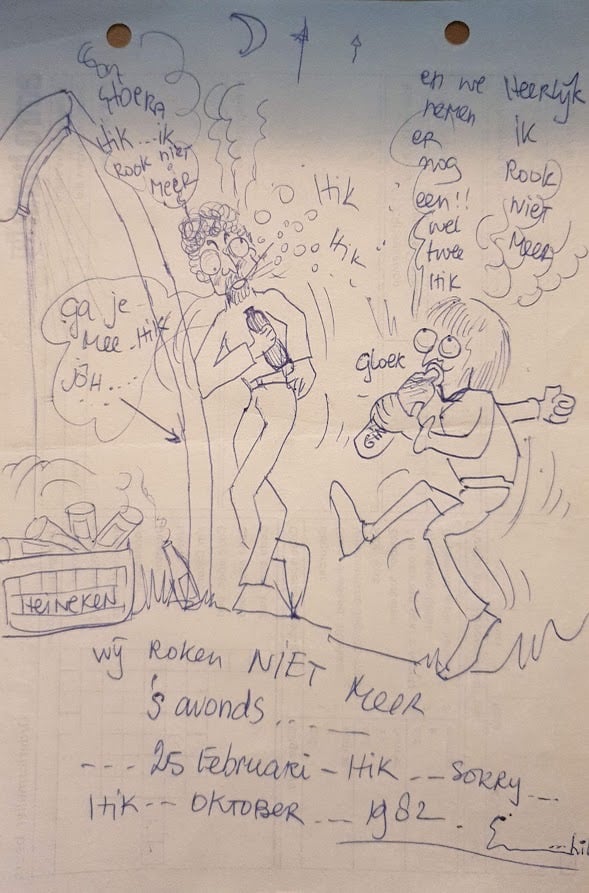 HOERA
Hik...ik
Rook niet
Meer
Hik
Hik
en we
nemen
er
nog
een!!
wel
twee
Hik
Heerlijk
ik
Rook
niet
Meer
ga je
Mee..Hik
JÔH....
gloek
HEINEKEN
wij Roken NIET Meer
's avonds......
---25 Februari - Hik...Sorry...
Hik-- Oktober...1982.